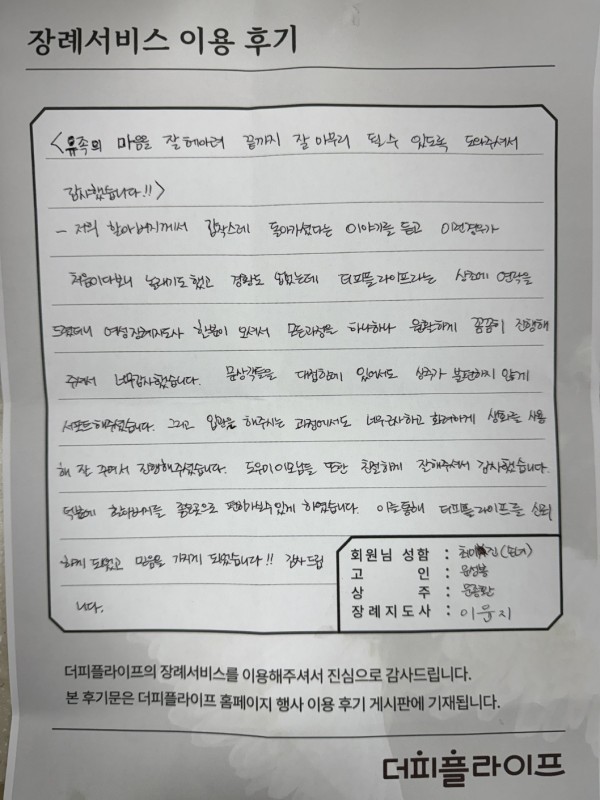 장례서비스 이용 후기
<유족의 마음을 잘 헤아려 끝까지 잘 마무리 될 수 있도록 도와주셔서
감사했습니다!!>
- 저희 할아버지께서 갑작스레 돌아가셨다는 이야기를 듣고 이런경우가
처음이다보니 놀래기도 했고 경황도 없었는데 더피플라이프라는 상조에 연락을
드렸더니 여성 장례지도사 한분이 오셔서 모든과정을 하나하나 원활하게 꼼꼼히 진행해
주셔서 너무감사했습니다. 문상객들을 대접함에 있어서도 상주가 불편하지 않게
서포트해주셨습니다. 그리고 입관을 해주시는 과정에서도 너무근사하고 화려하게 생화를 사용
해 잘 꾸며서 진행해주셨습니다. 도우미이모님들 또한 친절하게 잘해주셔서 감사했습니다.
덕분에 할아버지를 좋은곳으로 편히가실수있게 하였습니다. 이를통해 더피플라이프를 신뢰
하게 되었고 믿음을 가지게 되었습니다!! 감사드립
니다.
회원님 성함 :
고 인 : 윤성봉
상 주 :
장례지도사 : 이윤지
더피플라이프의 장례서비스를 이용해주셔서 진심으로 감사드립니다.
본 후기문은 더피플라이프 홈페이지 행사 이용 후기 게시판에 기재됩니다.
더피플라이프